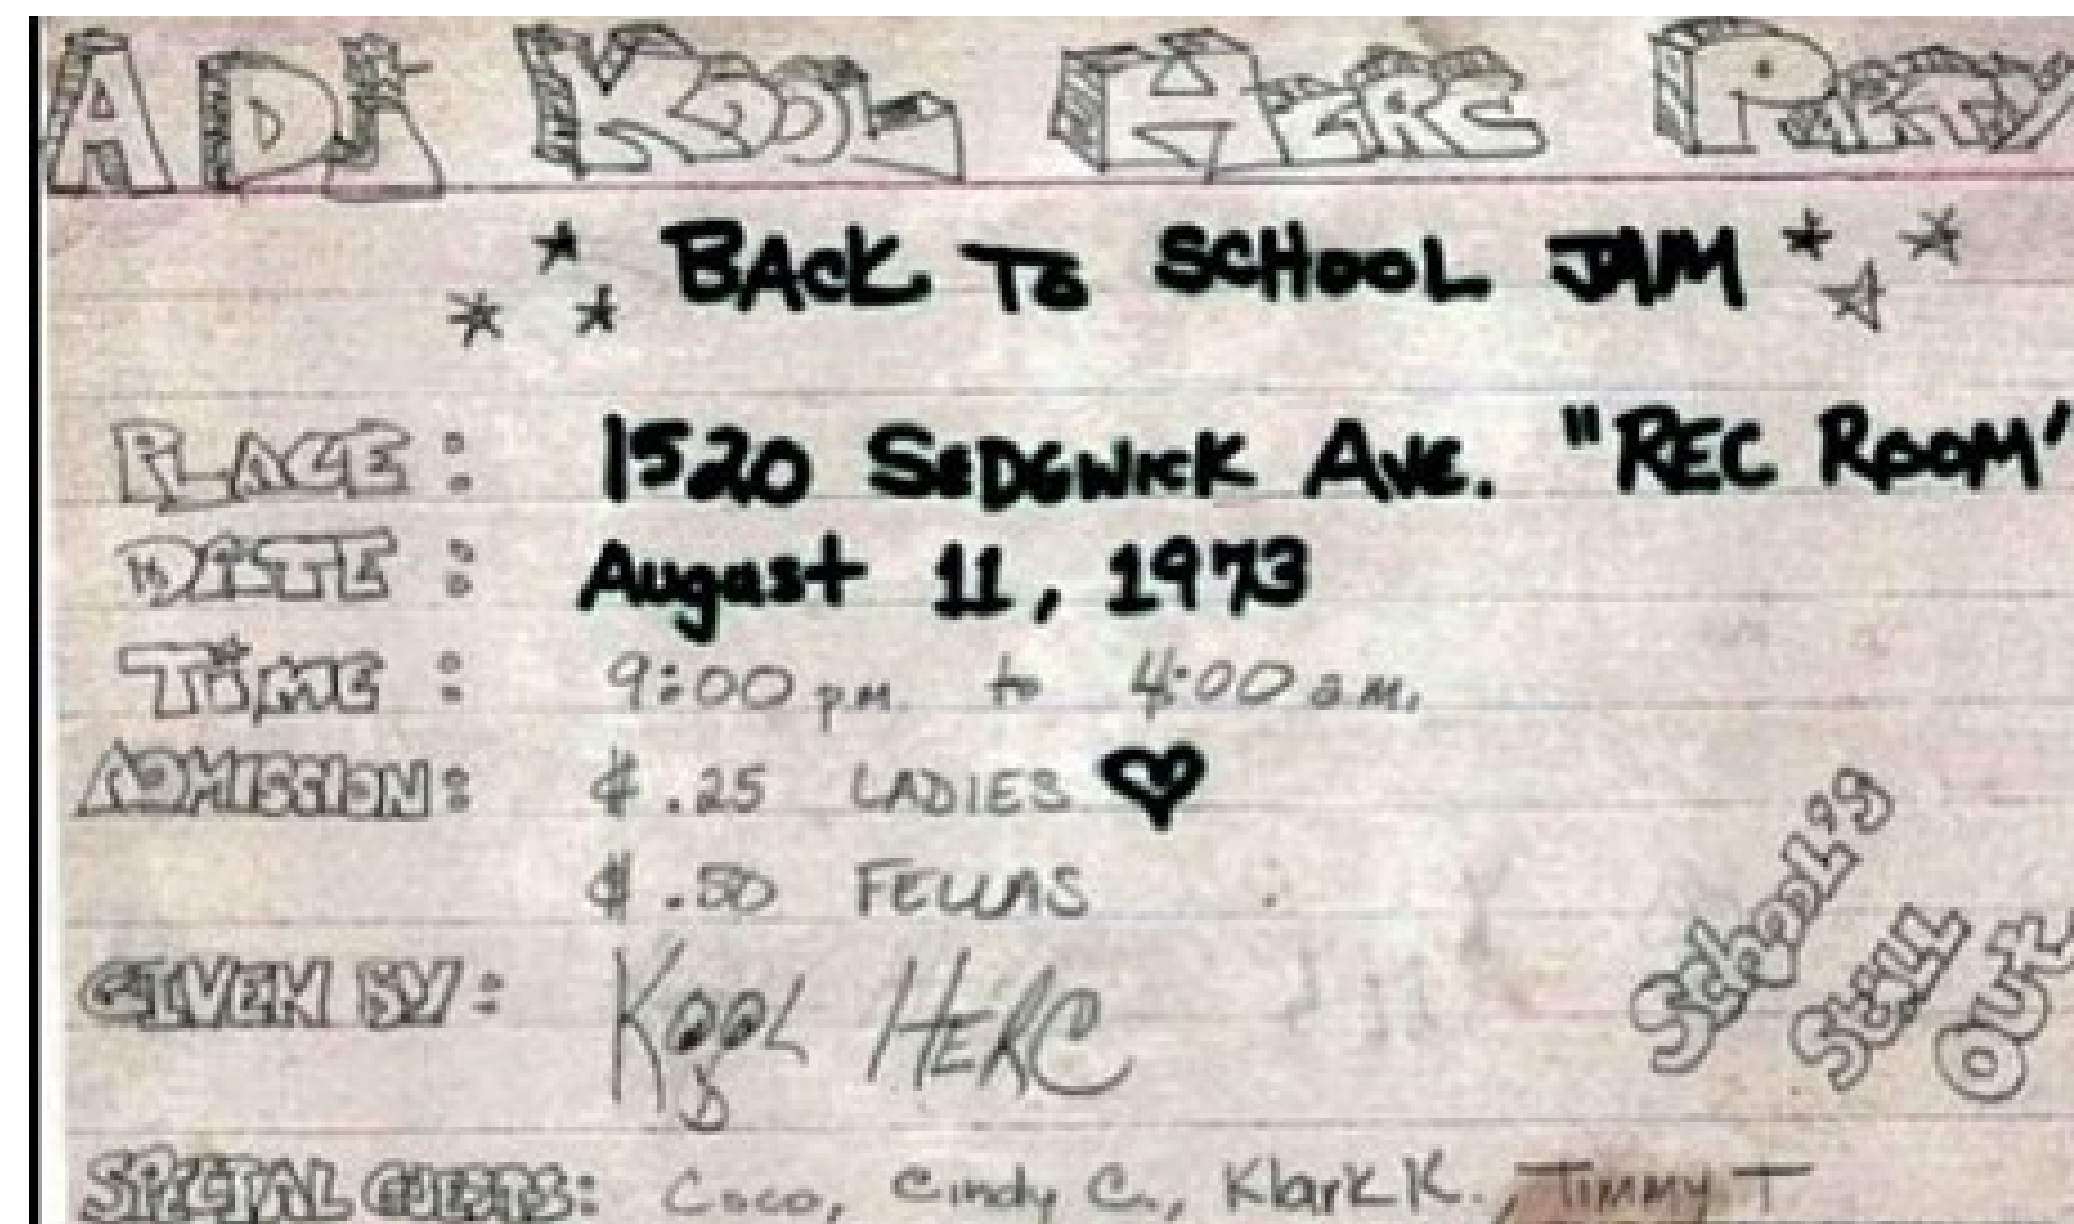 A DJ KOOL HERC PARTY
BACK TO SCHOOL JAM
PLACE: 1520 SEDGWICK AVE. "REC ROOM"
DATE: August 11, 1973
TIME: 9:00 pm to 4:00 am.
ADMISSION: $.25 LADIES
$.50 FELLAS
GIVEN BY: KOOL HERC
SPECIAL GUESTS: Coco, Cindy C., Klark K., Timmy T
School's
Still
Out